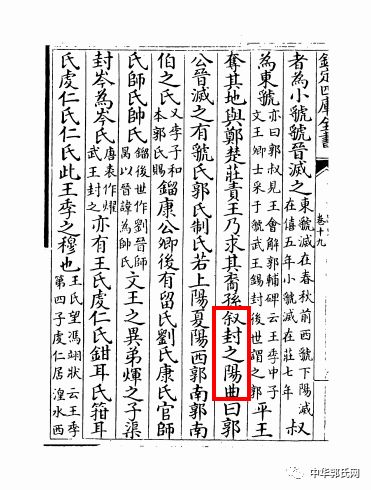 欽定四庫全書
卷十九
者為小虢虢晉滅之東虢滅在春秋前西虢下陽滅在僖五年小虢滅在莊七年叔
為東虢亦曰郭叔見王會解郭輔碑云王季中子文王卿士采于虢武王錫封後世謂之郭平王
奪其地與鄭楚莊責王乃求其裔孫叙封之陽曲曰郭
公晉滅之有虢氏郭氏制氏若上陽夏陽西郭南郭南
伯之氏又季子和本郭氏賜鎦康公卿後有留氏劉氏康氏官師
氏師氏帥氏鎦後世作劉晉師昺以晉諱為帥氏文王之異弟煇之子渠
封岑為岑氏唐表作燿武王封之亦有王氏虔仁氏鉗耳氏箝耳
氏虔仁氏仁氏此王季之穆也王氏望馮翊狀云王季第四子虔仁居湟水西
中华郭氏网